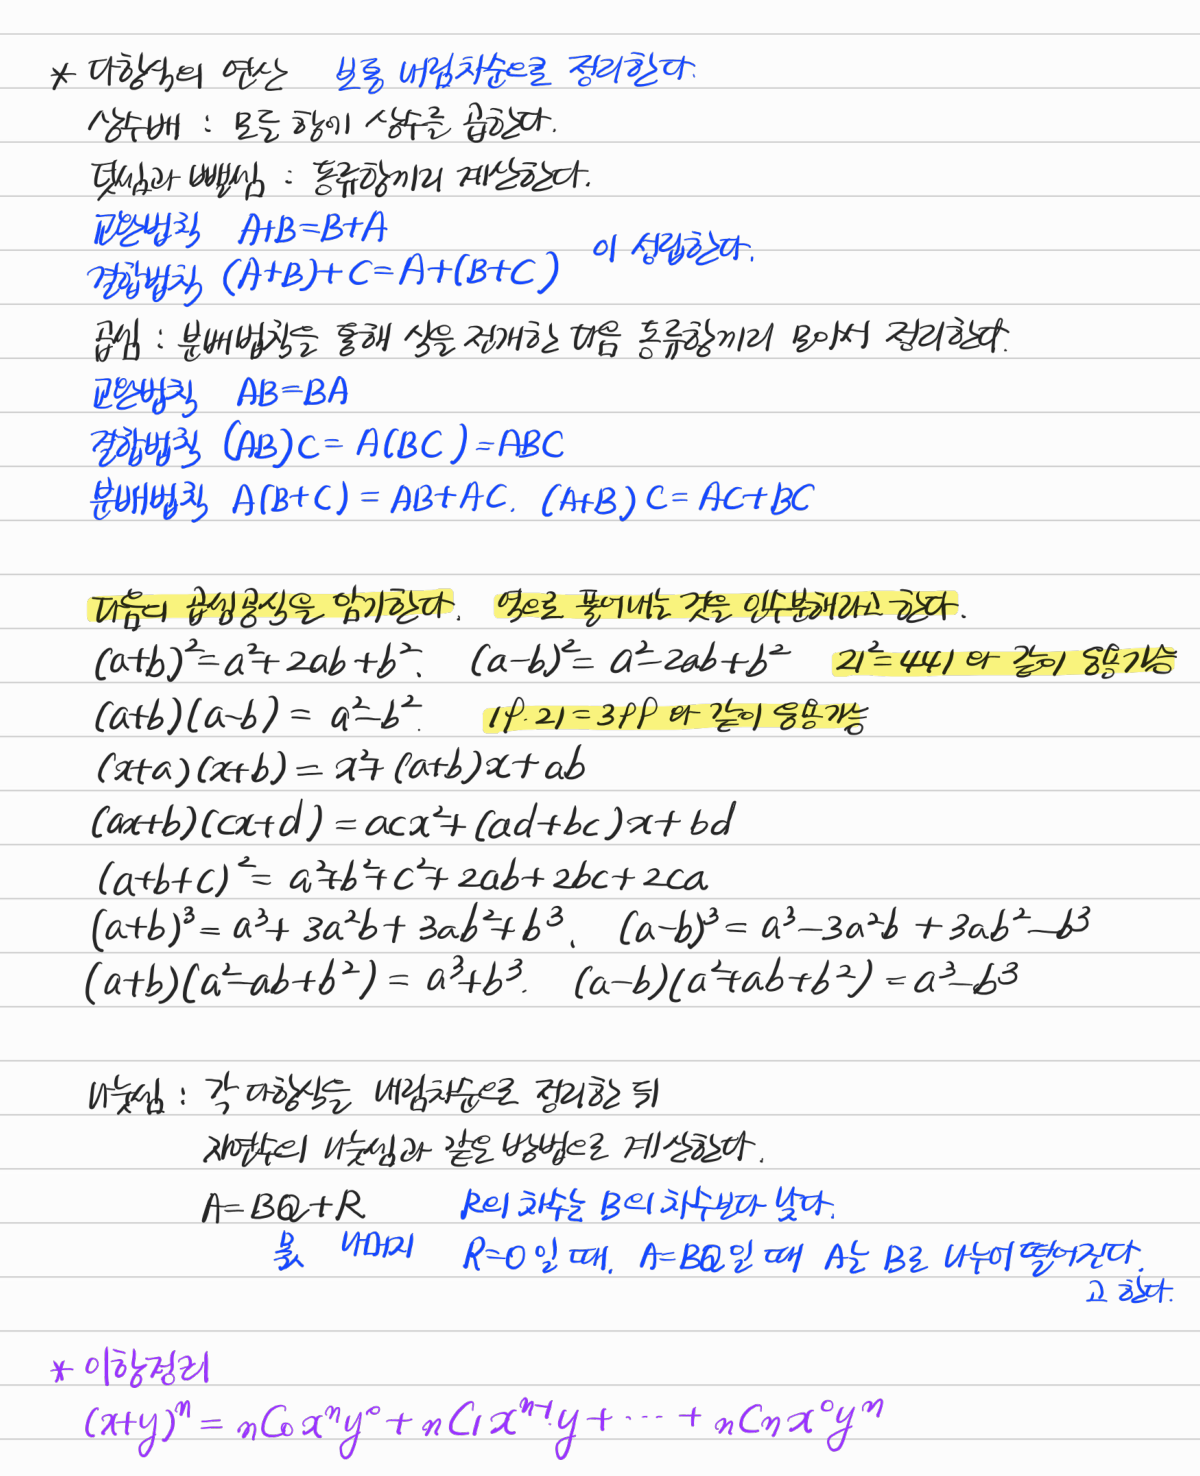 * 다항식의 연산 보통 내림차순으로 정리한다.
상수배 : 모든 항에 상수를 곱한다.
덧셈과 뺄셈 : 동류항끼리 계산한다.
교환법칙 A+B=B+A
이 성립한다.
결합법칙 (A+B)+C=A+(B+C)
곱셈 : 분배법칙을 통해 식을 전개한 다음 동류항끼리 모아서 정리한다.
교환법칙 AB=BA
결합법칙 (AB)C=A(BC)=ABC
분배법칙 A(B+C)=AB+AC. (A+B)C=AC+BC
다음의 곱셈공식을 암기한다. 역으로 풀어내는 것을 인수분해라고 한다.
(a+b)²=a²+2ab+b². (a-b)²=a²-2ab+b² 21²=441 와 같이 응용가능
(a+b)(a-b)=a²-b². 19·21=399 와 같이 응용가능
(x+a)(x+b)=x²+(a+b)x+ab
(ax+b)(cx+d)=acx²+(ad+bc)x+bd
(a+b+c)²=a²+b²+c²+2ab+2bc+2ca
(a+b)³=a³+3a²b+3ab²+b³. (a-b)³=a³-3a²b+3ab²-b³
(a+b)(a²-ab+b²)=a³+b³. (a-b)(a²+ab+b²)=a³-b³
나눗셈 : 각 다항식을 내림차순으로 정리한 뒤
자연수의 나눗셈과 같은 방법으로 계산한다.
A=BQ+R R의 차수는 B의 차수보다 낮다.
몫 나머지 R=0일 때, A=BQ일 때 A는 B로 나누어 떨어진다.
고 한다.
* 이항정리
(x+y)ⁿ = ₙC₀xⁿy⁰ + ₙC₁xⁿ⁻¹y + ··· + ₙCₙx⁰yⁿ